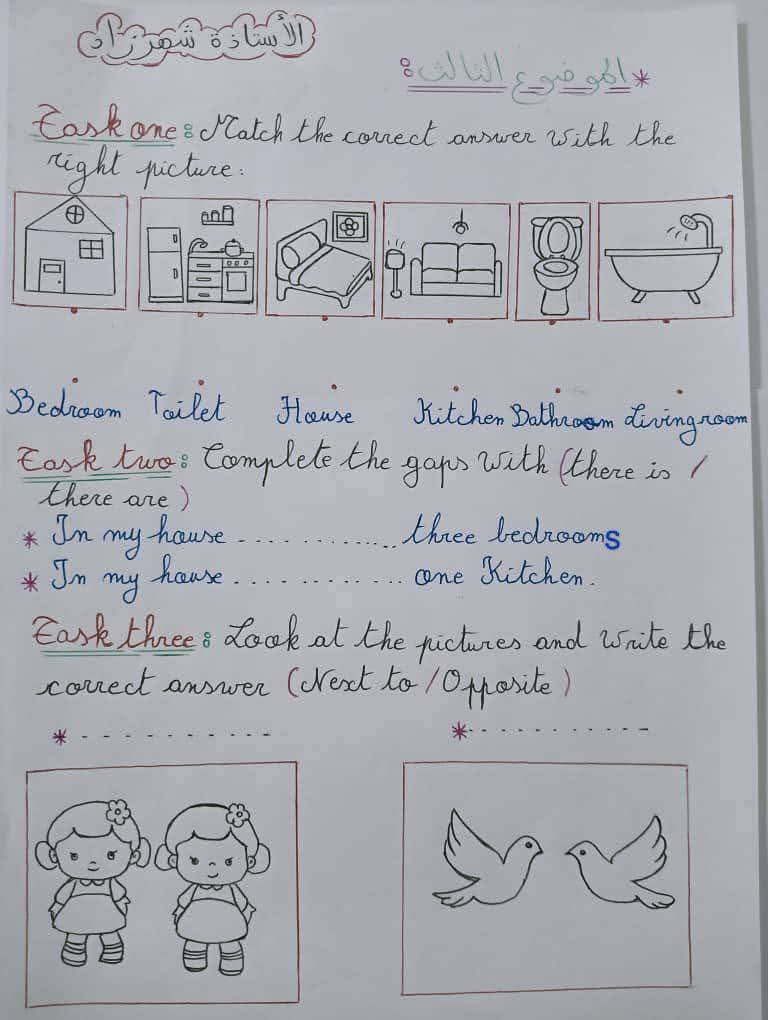 الأستاذة شهرزاد
* الموضوع الثالث:
Task one: Match the correct answer with the
right picture:
Bedroom Toilet House Kitchen Bathroom Livingroom
Task two: Complete the gaps with (there is /
there are)
* In my house ............... three bedrooms
* In my house ............. one Kitchen.
Task three: Look at the pictures and write the
correct answer (Next to / Opposite)
* - - - - - - - - - - - * - - - - - - - - - - -